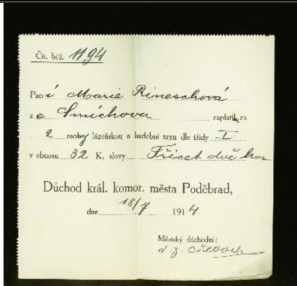 Čís. běž. 1194
Pan í Marie Rineschová
z e Smíchova zaplatil za
2 osoby lázeňskou a hudební taxu dle třídy I
v obnosu 32 K. slovy Třicet dvě kor
Důchod král. komor. města Poděbrad,
dne 18/7 1914
Městský důchodní: